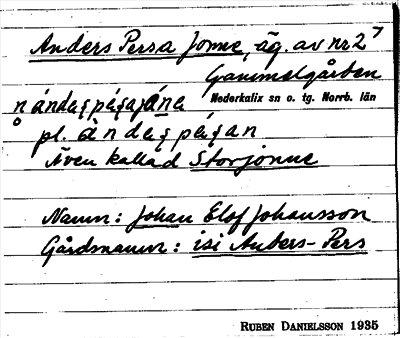 Anders Persa Jonne, äg. av nr 2⁷
Gammelgården
Nederkalix sn o. tg. Norrb. län
pl.
Även kallad Storjonne
Namn: Johan Elof Johansson
Gårdsnamn: isi Anders-Pers
RUBEN DANIELSSON 1935